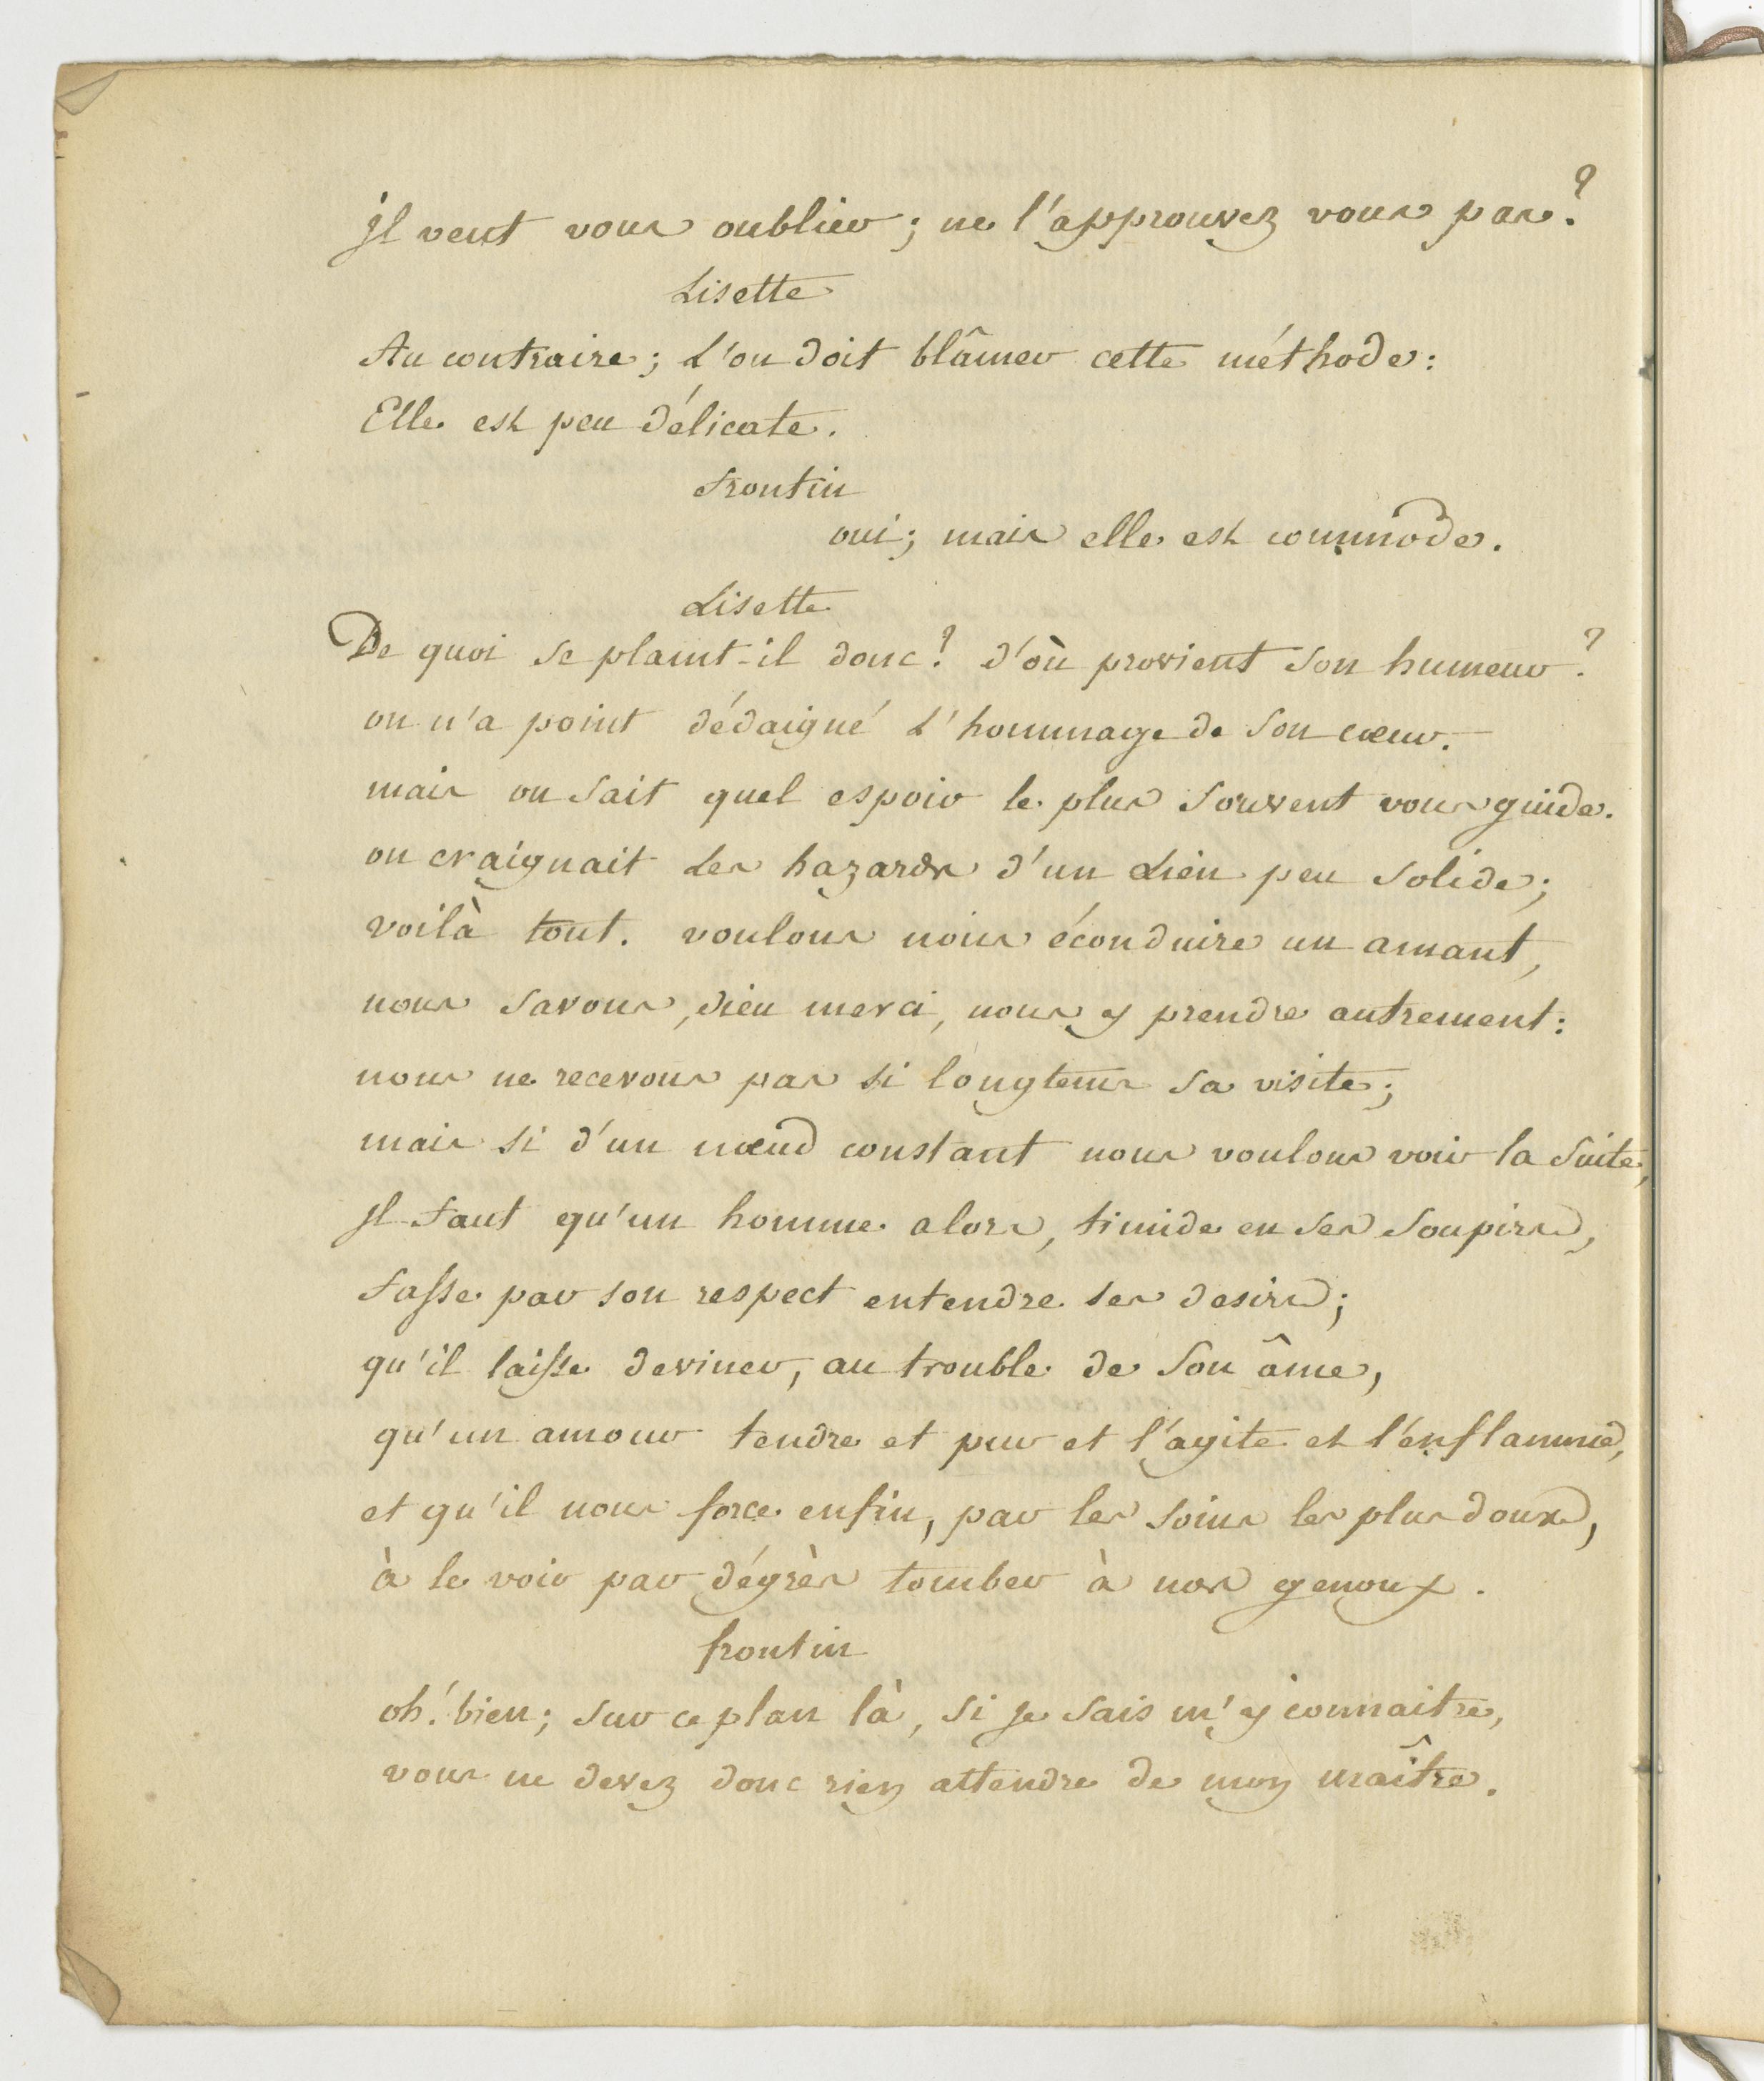 Il veut vous oublier; ne l'approuvez vous pas?
Lisette
Au contraire; l'on doit blâmer cette méthode:
Elle est peu délicate.
Frontin
oui; mais elle est commode.
Lisette
De quoi se plaint-il donc? d'où provient son humeur?
on n'a point dédaigné l'hommage de son cœur.
mais on sait quel espoir le plus souvent vous guide.
on craignait les hazards d'un lien peu solide;
voilà tout. voulons nous éconduire un amant,
nous savons, dieu merci, nous y prendre autrement:
nous ne recevons pas si longtems sa visite;
mais si d'un nœud constant nous voulons voir la suite,
Il faut qu'un homme alors, timide en ses soupirs,
fasse par son respect entendre ses desirs;
qu'il laisse deviner, au trouble de son âme,
qu'un amour tendre et pur et l'agite et l'enflamme,
et qu'il nous force enfin, par les soins les plus doux,
à le voir par dégrès tomber à nos genoux.
frontin
oh! bien; sur ce plan là, si je sais m'y connaitre,
vous ne devez donc rien attendre de mon maître.